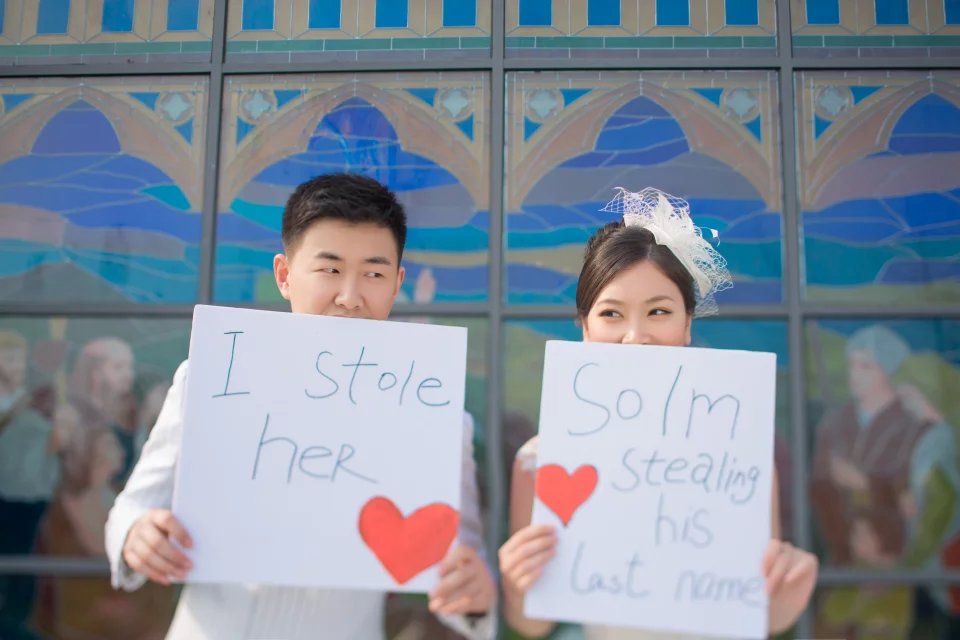 I Stole
her
SoIm
Stealing
his
last name